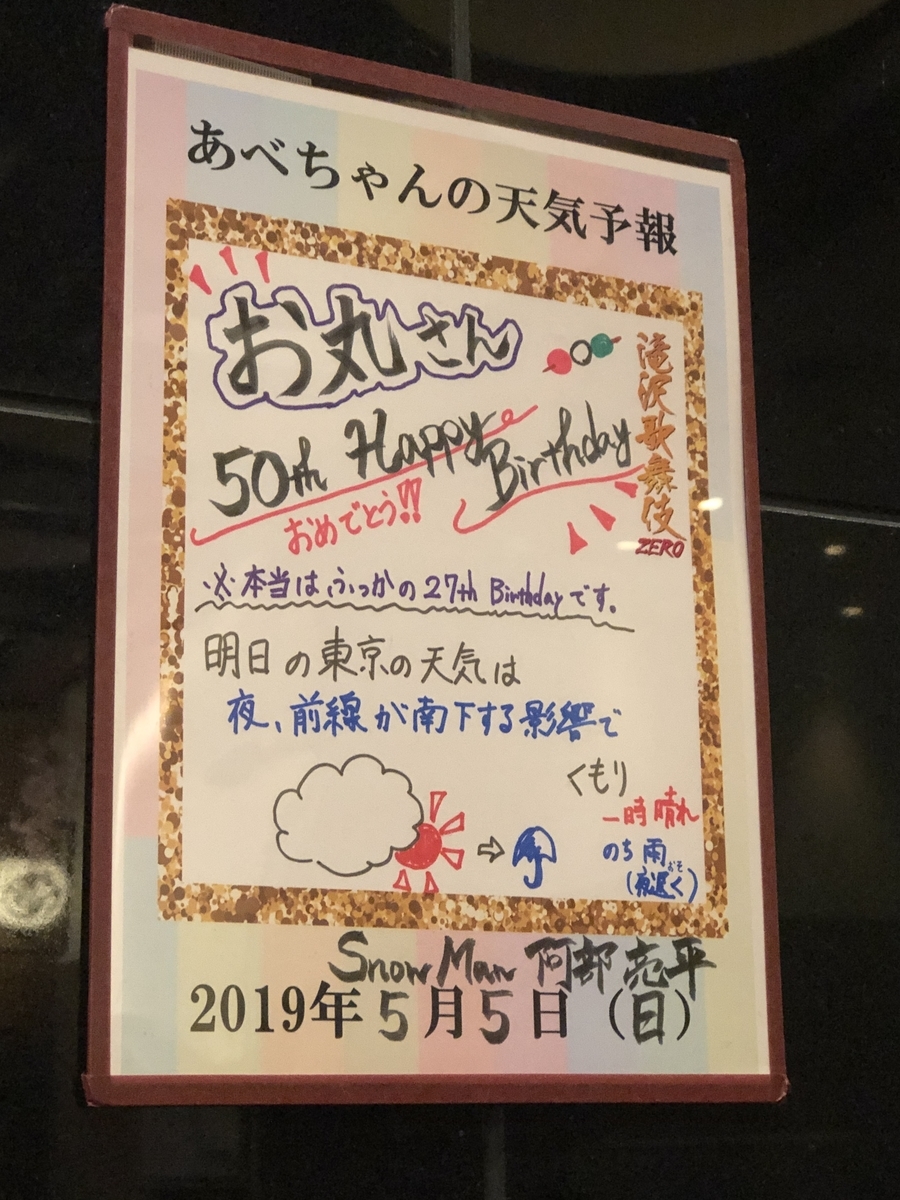 あべちゃんの天気予報
お丸さん
滝沢歌舞伎
ZERO
50th Happy Birthday
おめでとう!!
※本当はふっかの27th Birthdayです。
明日の東京の天気は
夜、前線が南下する影響で
くもり
一時晴れ
のち雨
(夜遅く)
おそ
Snow Man 阿部亮平
2019年5月5日(日)